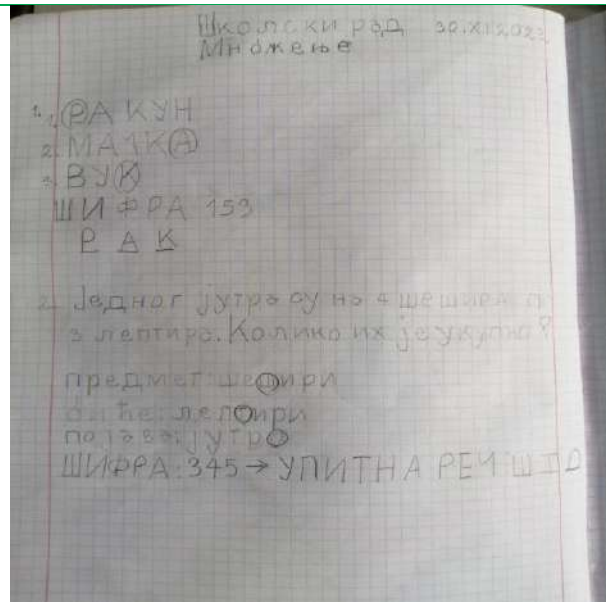 Школски рад 30.XI 2023
Множење
1. 1. РАКУН
2. МАЧКА
3. ВУК
ШИФРА 153
РАК
2. Једног јутра су на 4 шешира п
3 лептира. Колико их је укупно?
предмет: шешири
биће: лептири
појава: јутро
ШИФРА: 345 → УПИТНА РЕЧ ШТО